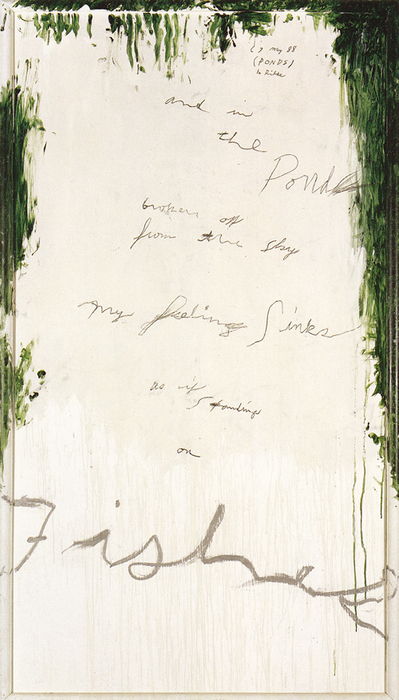 may 88
(PONDS)
to Rilke
and in
the
Ponds
broken off
from the sky
my feeling Sinks
as if
standing
on
Fishes